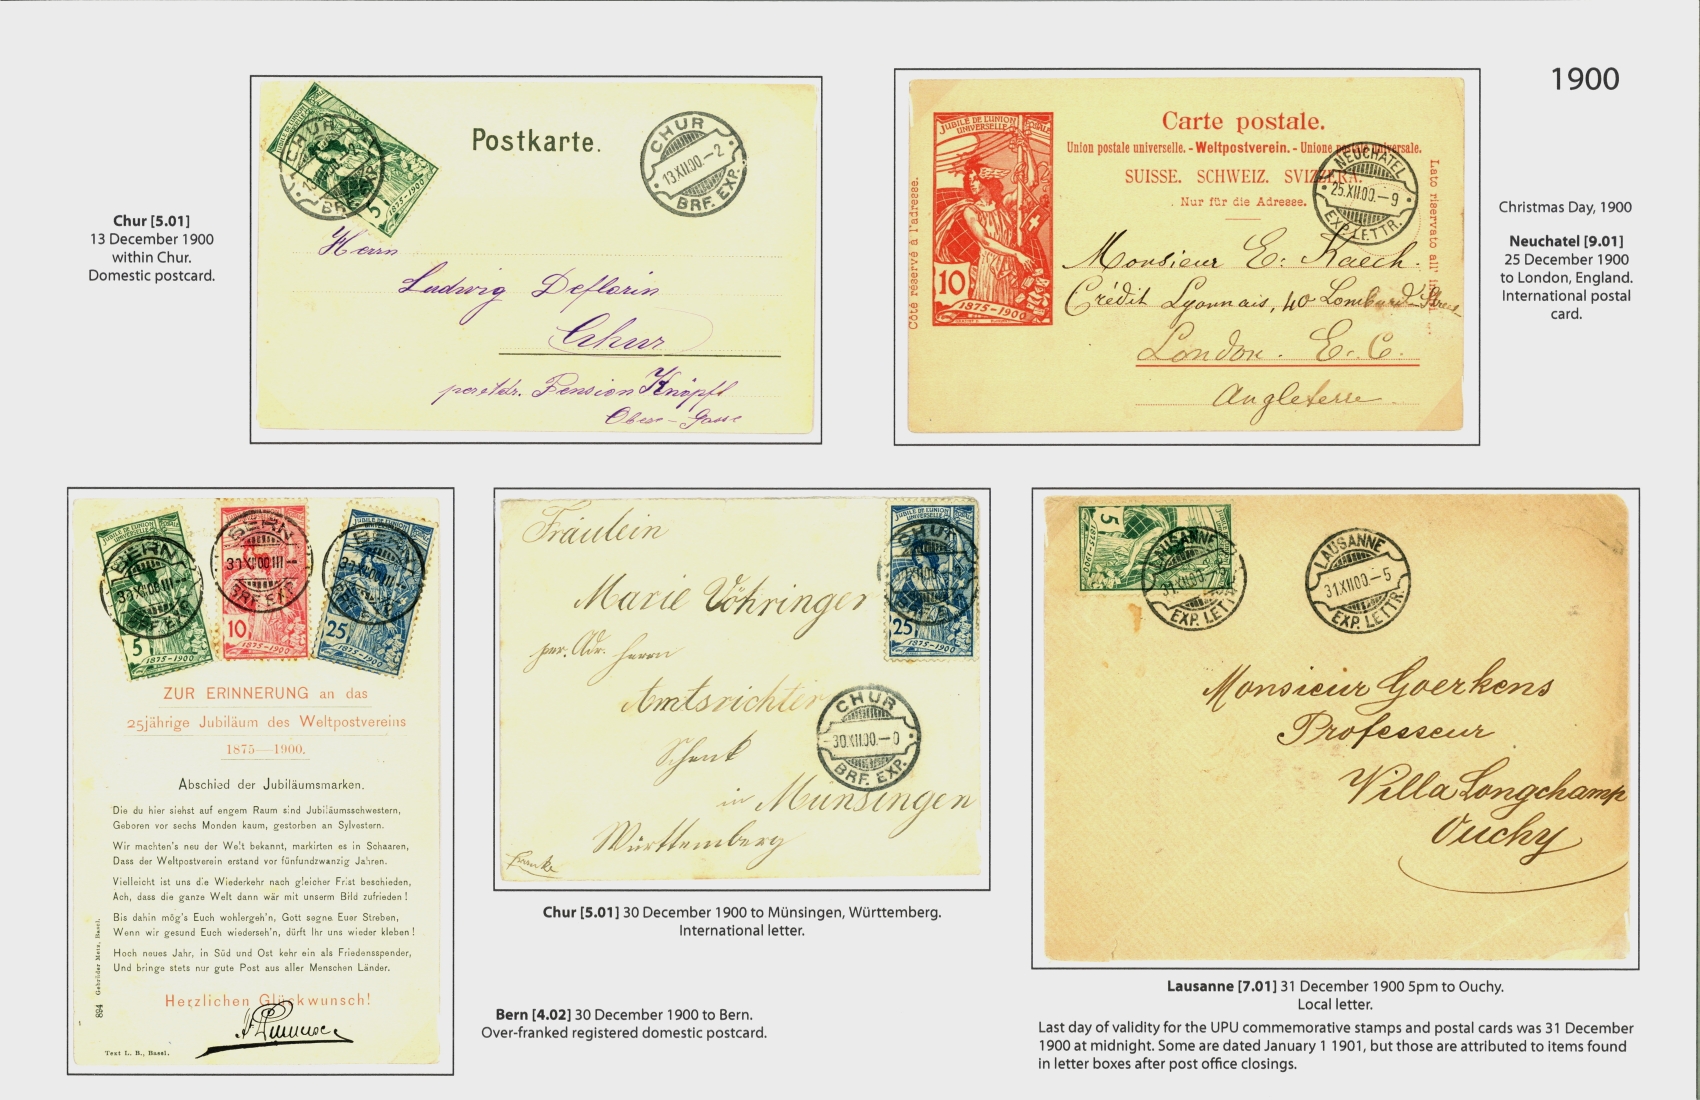 1900
CHUR
13.XII.00.–2
BRF. EXP.
5
1875-1900
Postkarte.
CHUR
13.XII.00.–2
BRF. EXP.
Herrn
Ludwig Deflorin
Chur
Pension Knöpfl
Obere-Gasse
Chur [5.01]
13 December 1900
within Chur.
Domestic postcard.
JUBILÉ DE L'UNION
UNIVERSELLE POSTALE
10
1875-1900
Côté réservé à l'adresse.
Carte postale.
Union postale universelle. - Weltpostverein. - Unione postale universale.
SUISSE. SCHWEIZ. SVIZZERA.
Nur für die Adresse.
Lato riservato all'
NEUCHATEL
25.XII.00.–9
EXP. LETTR.
Monsieur E. Kaech.
Crédit Lyonnais, 40 Lombard Street
London. E. C.
Angleterre
Christmas Day, 1900
Neuchatel [9.01]
25 December 1900
to London, England.
International postal
card.
BERN
BRF. EXP.
5
1875-1900
JUBILÉ DE L'UNION
BERN
BRF. EXP.
10
1875-1900
JUBILÉ DE L'UNION
BERN
25
1875-1900
ZUR ERINNERUNG an das
25jährige Jubiläum des Weltpostvereins
1875—1900.
Abschied der Jubiläumsmarken.
Die du hier siehst auf engem Raum sind Jubiläumsschwestern,
Geboren vor sechs Monden kaum, gestorben an Sylvestern.
Wir machten's neu der Welt bekannt, markirten es in Schaaren,
Dass der Weltpostverein erstand vor fünfundzwanzig Jahren.
Vielleicht ist uns die Wiederkehr nach gleicher Frist beschieden,
Ach, dass die ganze Welt dann wär mit unserm Bild zufrieden!
Bis dahin mög's Euch wohlergeh'n, Gott segne Euer Streben,
Wenn wir gesund Euch wiederseh'n, dürft Ihr uns wieder kleben!
Hoch neues Jahr, in Süd und Ost kehr ein als Friedensspender,
Und bringe stets nur gute Post aus aller Menschen Länder.
Herzlichen Glückwunsch!
Text L. B., Basel.
894 Gebrüder Metz, Basel.
Fräulein
Marie Vöhringer
per. Adr. Herrn
Amtsrichter
Schenk
in Munsingen
Württemberg
Franke
CHUR
25
1875-1900
CHUR
30.XII.00.–0
BRF. EXP.
Chur [5.01] 30 December 1900 to Münsingen, Württemberg.
International letter.
Bern [4.02] 30 December 1900 to Bern.
Over-franked registered domestic postcard.
5
1875-1900
LAUSANNE
EXP. LETTR.
LAUSANNE
31.XII.00.–5
EXP. LETTR.
Monsieur Goerkens
Professeur
Villa Longchamp
Ouchy
Lausanne [7.01] 31 December 1900 5pm to Ouchy.
Local letter.
Last day of validity for the UPU commemorative stamps and postal cards was 31 December
1900 at midnight. Some are dated January 1 1901, but those are attributed to items found
in letter boxes after post office closings.